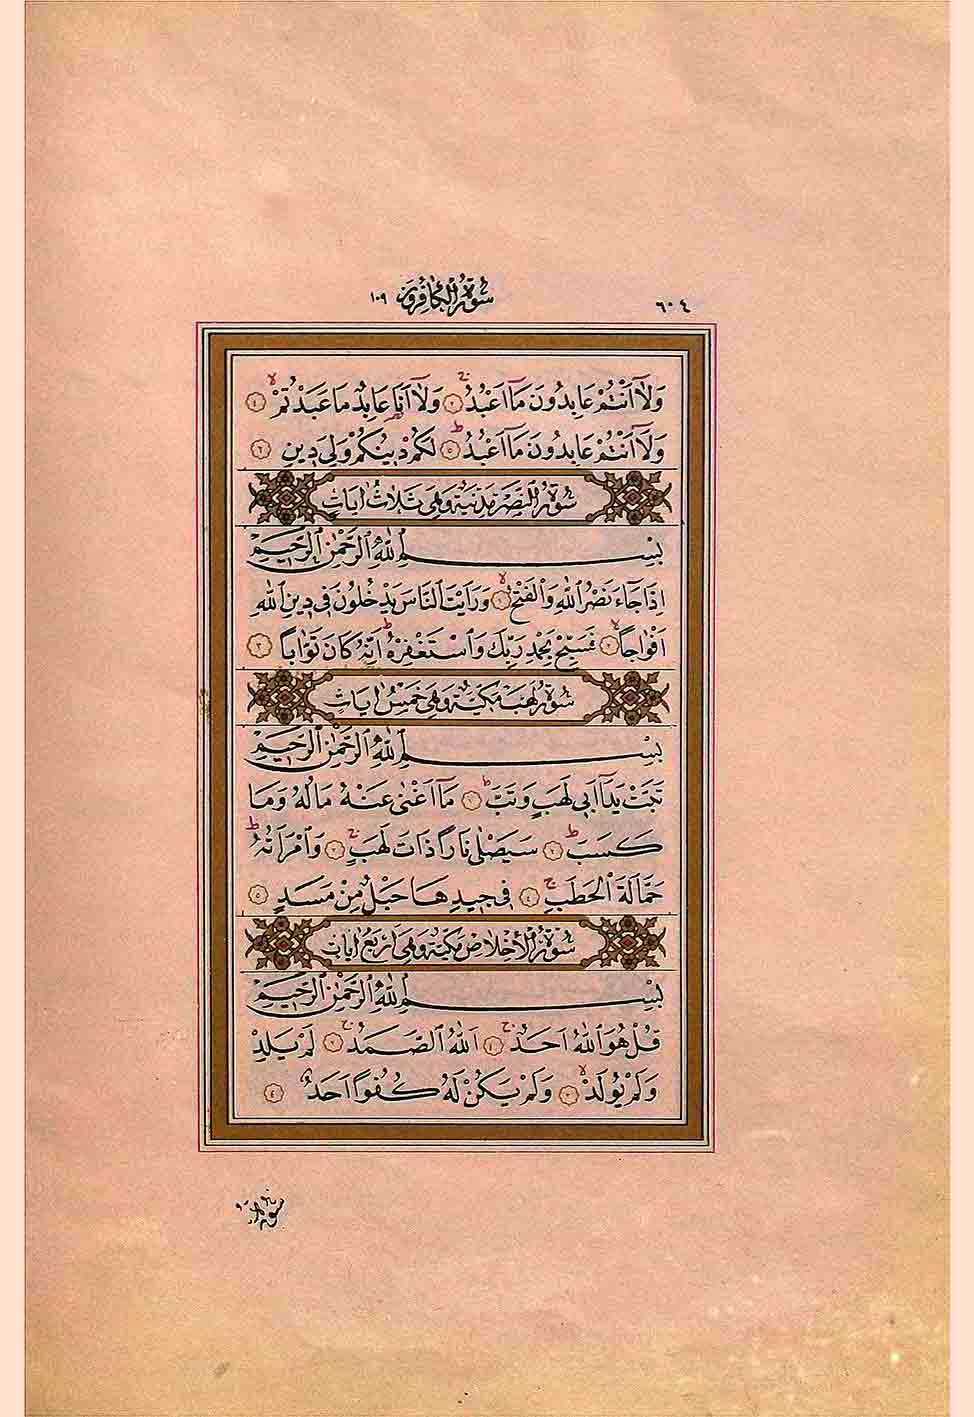 ٦٠٤ سُورَةُ الْكَافِرُونَ ١٠٩
وَلَٓا اَنْتُمْ عَابِدُونَ مَٓا اَعْبُدُۚ ٣ وَلَٓا اَنَا۬ عَابِدٌ مَا عَبَدْتُمْۙ ٤
وَلَٓا اَنْتُمْ عَابِدُونَ مَٓا اَعْبُدُۜ ٥ لَكُمْ دِينُكُمْ وَلِيَ دِينِ ٦
سُورَةُ النَّصْرِ مَدَنِيَّةٌ وَهِيَ ثَلَاثُ اٰيَاتٍ
بِسْمِ اللّٰهِ الرَّحْمٰنِ الرَّحِيمِ
اِذَا جَٓاءَ نَصْرُ اللّٰهِ وَالْفَتْحُۙ ١ وَرَاَيْتَ النَّاسَ يَدْخُلُونَ فِي دِينِ اللّٰهِ
اَفْوَاجاًۙ ٢ فَسَبِّحْ بِحَمْدِ رَبِّكَ وَاسْتَغْفِرْهُۜ اِنَّهُ كَانَ تَوَّاباً ٣
سُورَةُ لَهَبٍ مَكِّيَّةٌ وَهِيَ خَمْسُ اٰيَاتٍ
بِسْمِ اللّٰهِ الرَّحْمٰنِ الرَّحِيمِ
تَبَّتْ يَدَٓا اَبِي لَهَبٍ وَتَبَّۜ ١ مَٓا اَغْنٰى عَنْهُ مَالُهُ وَمَا
كَسَبَۜ ٢ سَيَصْلٰى نَاراً ذَاتَ لَهَبٍۚ ٣ وَامْرَاَتُهُۜ
حَمَّالَةَ الْحَطَبِۚ ٤ فِي جِيدِهَا حَبْلٌ مِنْ مَسَدٍ ٥
سُورَةُ الْاِخْلَاصِ مَكِّيَّةٌ وَهِيَ اَرْبَعُ اٰيَاتٍ
بِسْمِ اللّٰهِ الرَّحْمٰنِ الرَّحِيمِ
قُلْ هُوَ اللّٰهُ اَحَدٌۚ ١ اَللّٰهُ الصَّمَدُۚ ٢ لَمْ يَلِدْ
وَلَمْ يُولَدْۙ ٣ وَلَمْ يَكُنْ لَهُ كُفُواً اَحَدٌ ٤